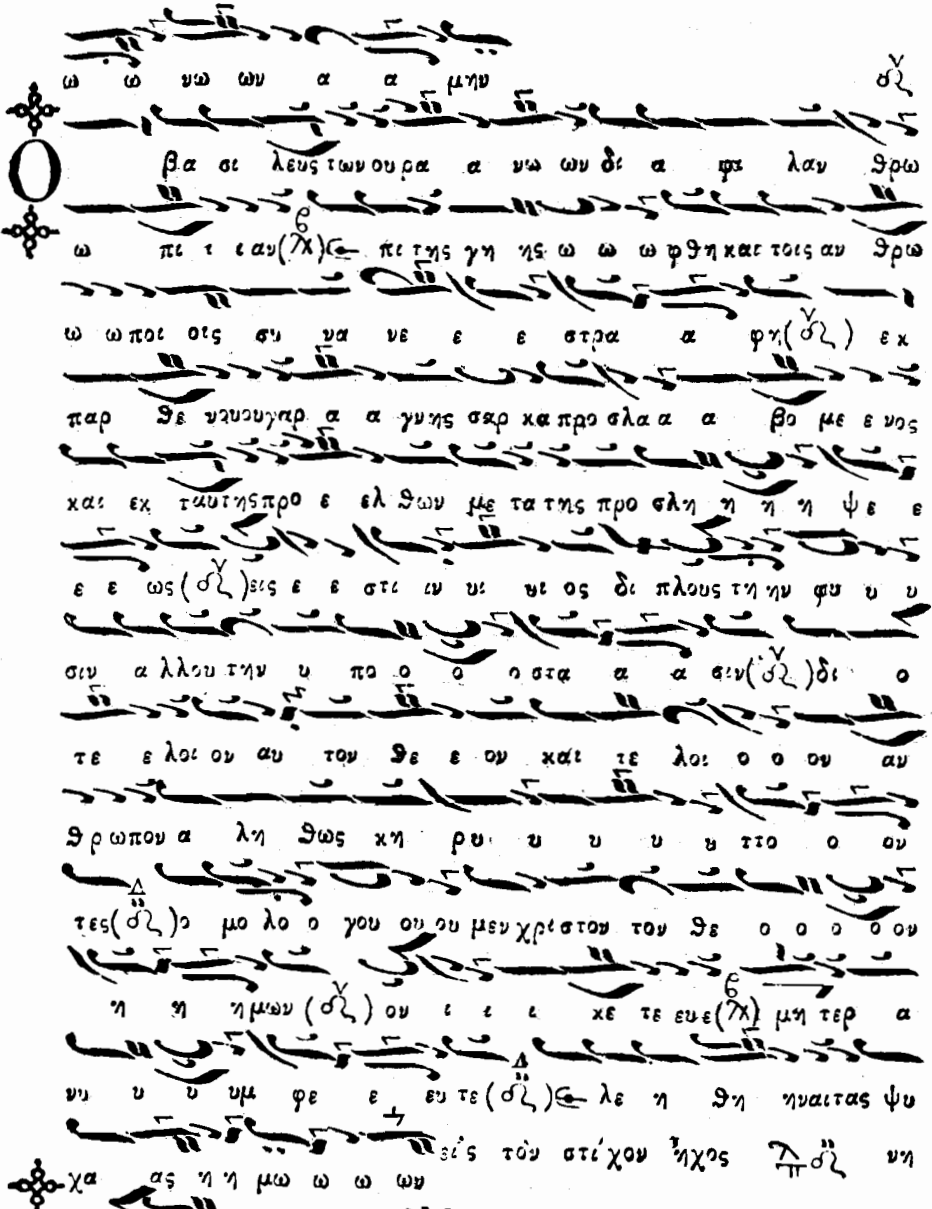 ω ω νω ων α α μην
Ο βα σι λευς των ου ρα α νω ων δι α φι λαν θρω
ω πι ι ι αν ε πι της γη ης ω ω ω φθη και τοις αν θρω
ω ω ποι οις συ να νε ε ε στρα α φη εκ
παρ θε νου ου γαρ α α γνης σαρ κα προ σλα α α βο με ε νος
και εκ ταυτης προ ε ελ θων με τα της προ σλη η η η ψε ε
ε ε ως εις ε ε στι ιν υι υι ος δι πλους τη ην φυ υ υ
σιν α λλου την υ πο ο ο ο στα α α σιν δι ο
τε ε λοι ον αυ τον θε ε ον και τε λοι ο ο ον αν
θρωπον α λη θως κη ρυ υ υ υ υ ττο ο ον
τες ο μο λο ο γου ου ου μεν χριστον τον θε ο ο ο ο ον
η η ημων ον ι ι ι κε τε ευε μη τερ α
νυ υ υ υμ φε ε ευ τε ε λε η θη ηναι τας ψυ
χα ας η η μω ω ω ων εις τον στίχον ἦχος λ π νη